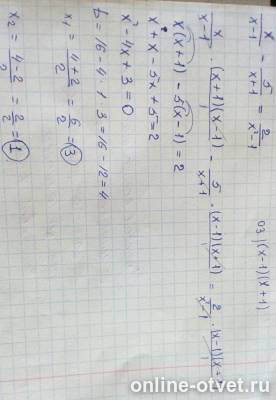 x/(x-1) - 5/(x+1) = 2/(x²-1)    ОЗ (x-1)(x+1)
x/(x-1) · (x+1)(x-1)/1 - 5/(x+1) · (x-1)(x+1) = 2/(x²-1) · (x-1)(x+1)/1
x(x+1) - 5(x-1) = 2
x² + x - 5x + 5 = 2
x² - 4x + 3 = 0
D = 16 - 4 · 1 · 3 = 16 - 12 = 4
x₁ = (4+2)/2 = 6/2 = 3
x₂ = (4-2)/2 = 2/2 = 1
online-otvet.ru